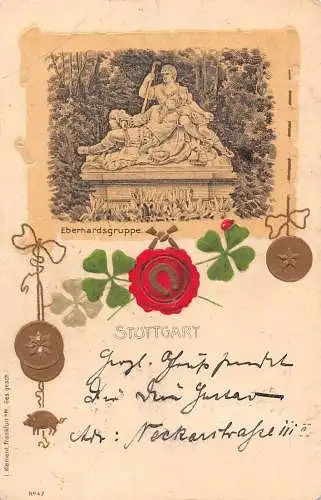 Eberhardsgruppe.
STUTTGART
Herzl. Gruß sendet
Dir Dein Gustav
Adr: Neckarstraße
Klement, Frankfurt a/M. Ges. gesch.
No 47